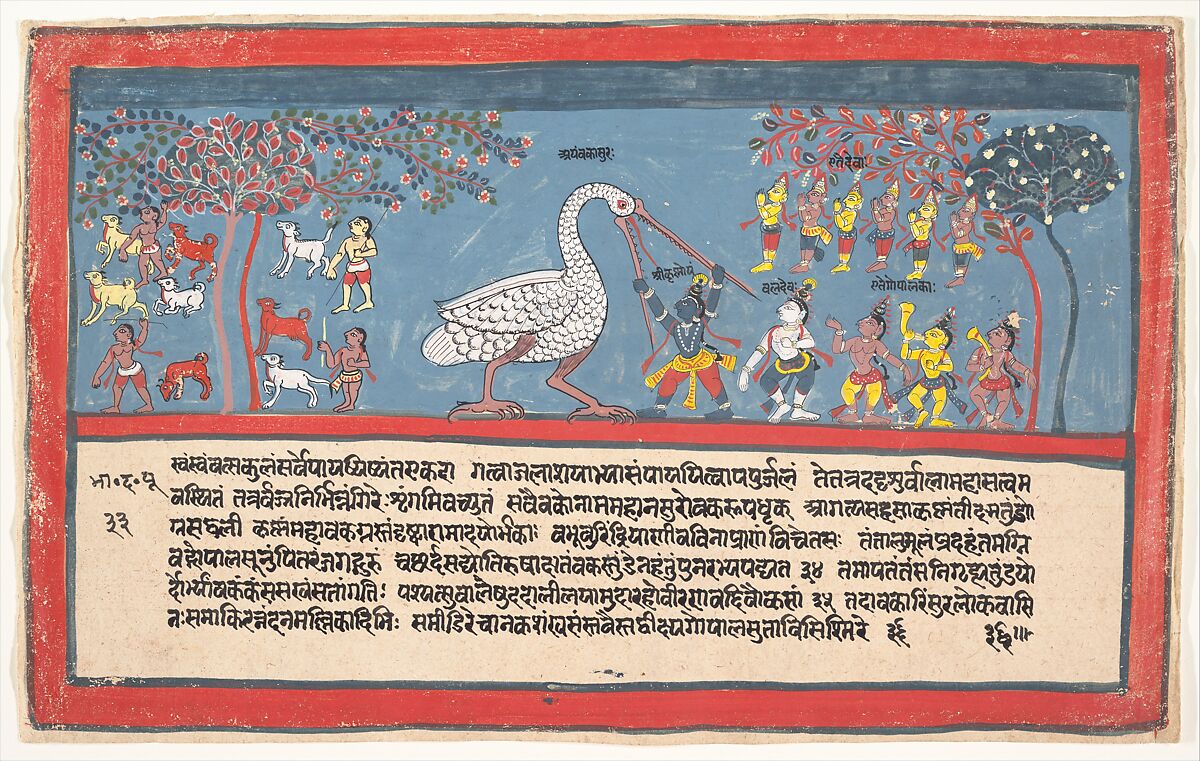 अयंवकासुरः
एतेदेवाः
श्रीकृष्णोयं
वलदेवः
एतेगोपालकाः
भा॰द॰पू
३३
स्वंस्वंवत्सकुलंसर्वेपाययिष्यंतएकदा गत्वाजलाशयाभ्यासंपाययित्वापपुर्जलं तेतत्रददृशुर्वालामहासत्वम
वस्थितं तत्रसुर्वज्रनिर्भिन्नंगिरेःशृंगमिवच्युतं सवैवकोनाममहानसुरोवकरूपधृक् आगत्यसहसाकृष्णंतीक्ष्णतुंडो
ग्रसद्वली कृष्णंमहावकग्रस्तंदृष्ट्वारामादयोर्भकाः वभूवुरिंद्रियाणीवविनाप्राणंविचेतसः तंतालुमूलंप्रदहंतमग्नि
वद्गोपालसूनुंपितरंजगद्गुरुं चच्छर्दसद्योतिरुषाक्षतंवकस्तुंडेनहंतुंपुनरभ्यपद्यत ३४ तमापतंतंसनिगृह्यतुंडयो
र्दोर्भ्यांवकंकंससखंसतांगतिः पश्यत्सुवालेषुददारलीलयामुदावहोवीरणवद्दिवौकसां ३५ तदावकारिंसुरलोकवासि
नःसमाकिरन्नंदनमल्लिकादिभिः समीडिरेचानकशंखसंस्तवैस्तद्वीक्ष्यगोपालसुताविसिस्मिरे ३६ ३६॥